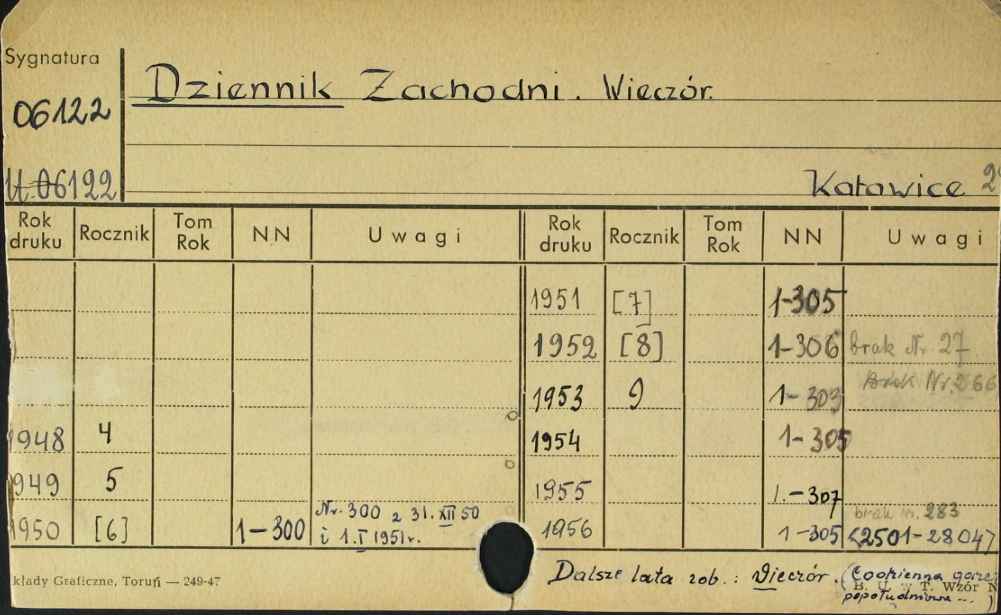 Sygnatura
Dziennik Zachodni. Wieczór.
06122
U.06122
Katowice
Rok druku Rocznik Tom Rok NN Uwagi Rok druku Rocznik Tom Rok NN Uwagi
1951 [7] 1-305
1952 [8] 1-306 brak Nr. 27
1953 9 1-303 Brak Nr. 266
1948 4 1954 1-305
1949 5 1955 1.-307
1950 [6] 1-300 Nr. 300 z 31.XII 50 i 1.I 1951r. 1956 1-305 brak nr. 283 (2501-2804)
kłady Graficzne, Toruń — 249-47
Dalsze lata zob.: Wieczór. (Codzienna gazeta
B. U. w T. Wzór N
popołudniowa...)